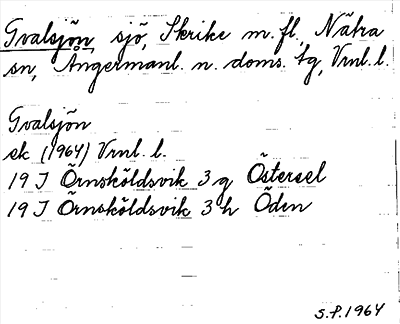 Tvalsjön, sjö, Skrike m. fl., Nätra
sn, Ångermanl. n. doms. tg, Vrnl. l.
Tvalsjön
ek (1964) Vrnl. l.
19 J Örnsköldsvik 3 g Östersel
19 J Örnsköldsvik 3 h Öden
S.P. 1964